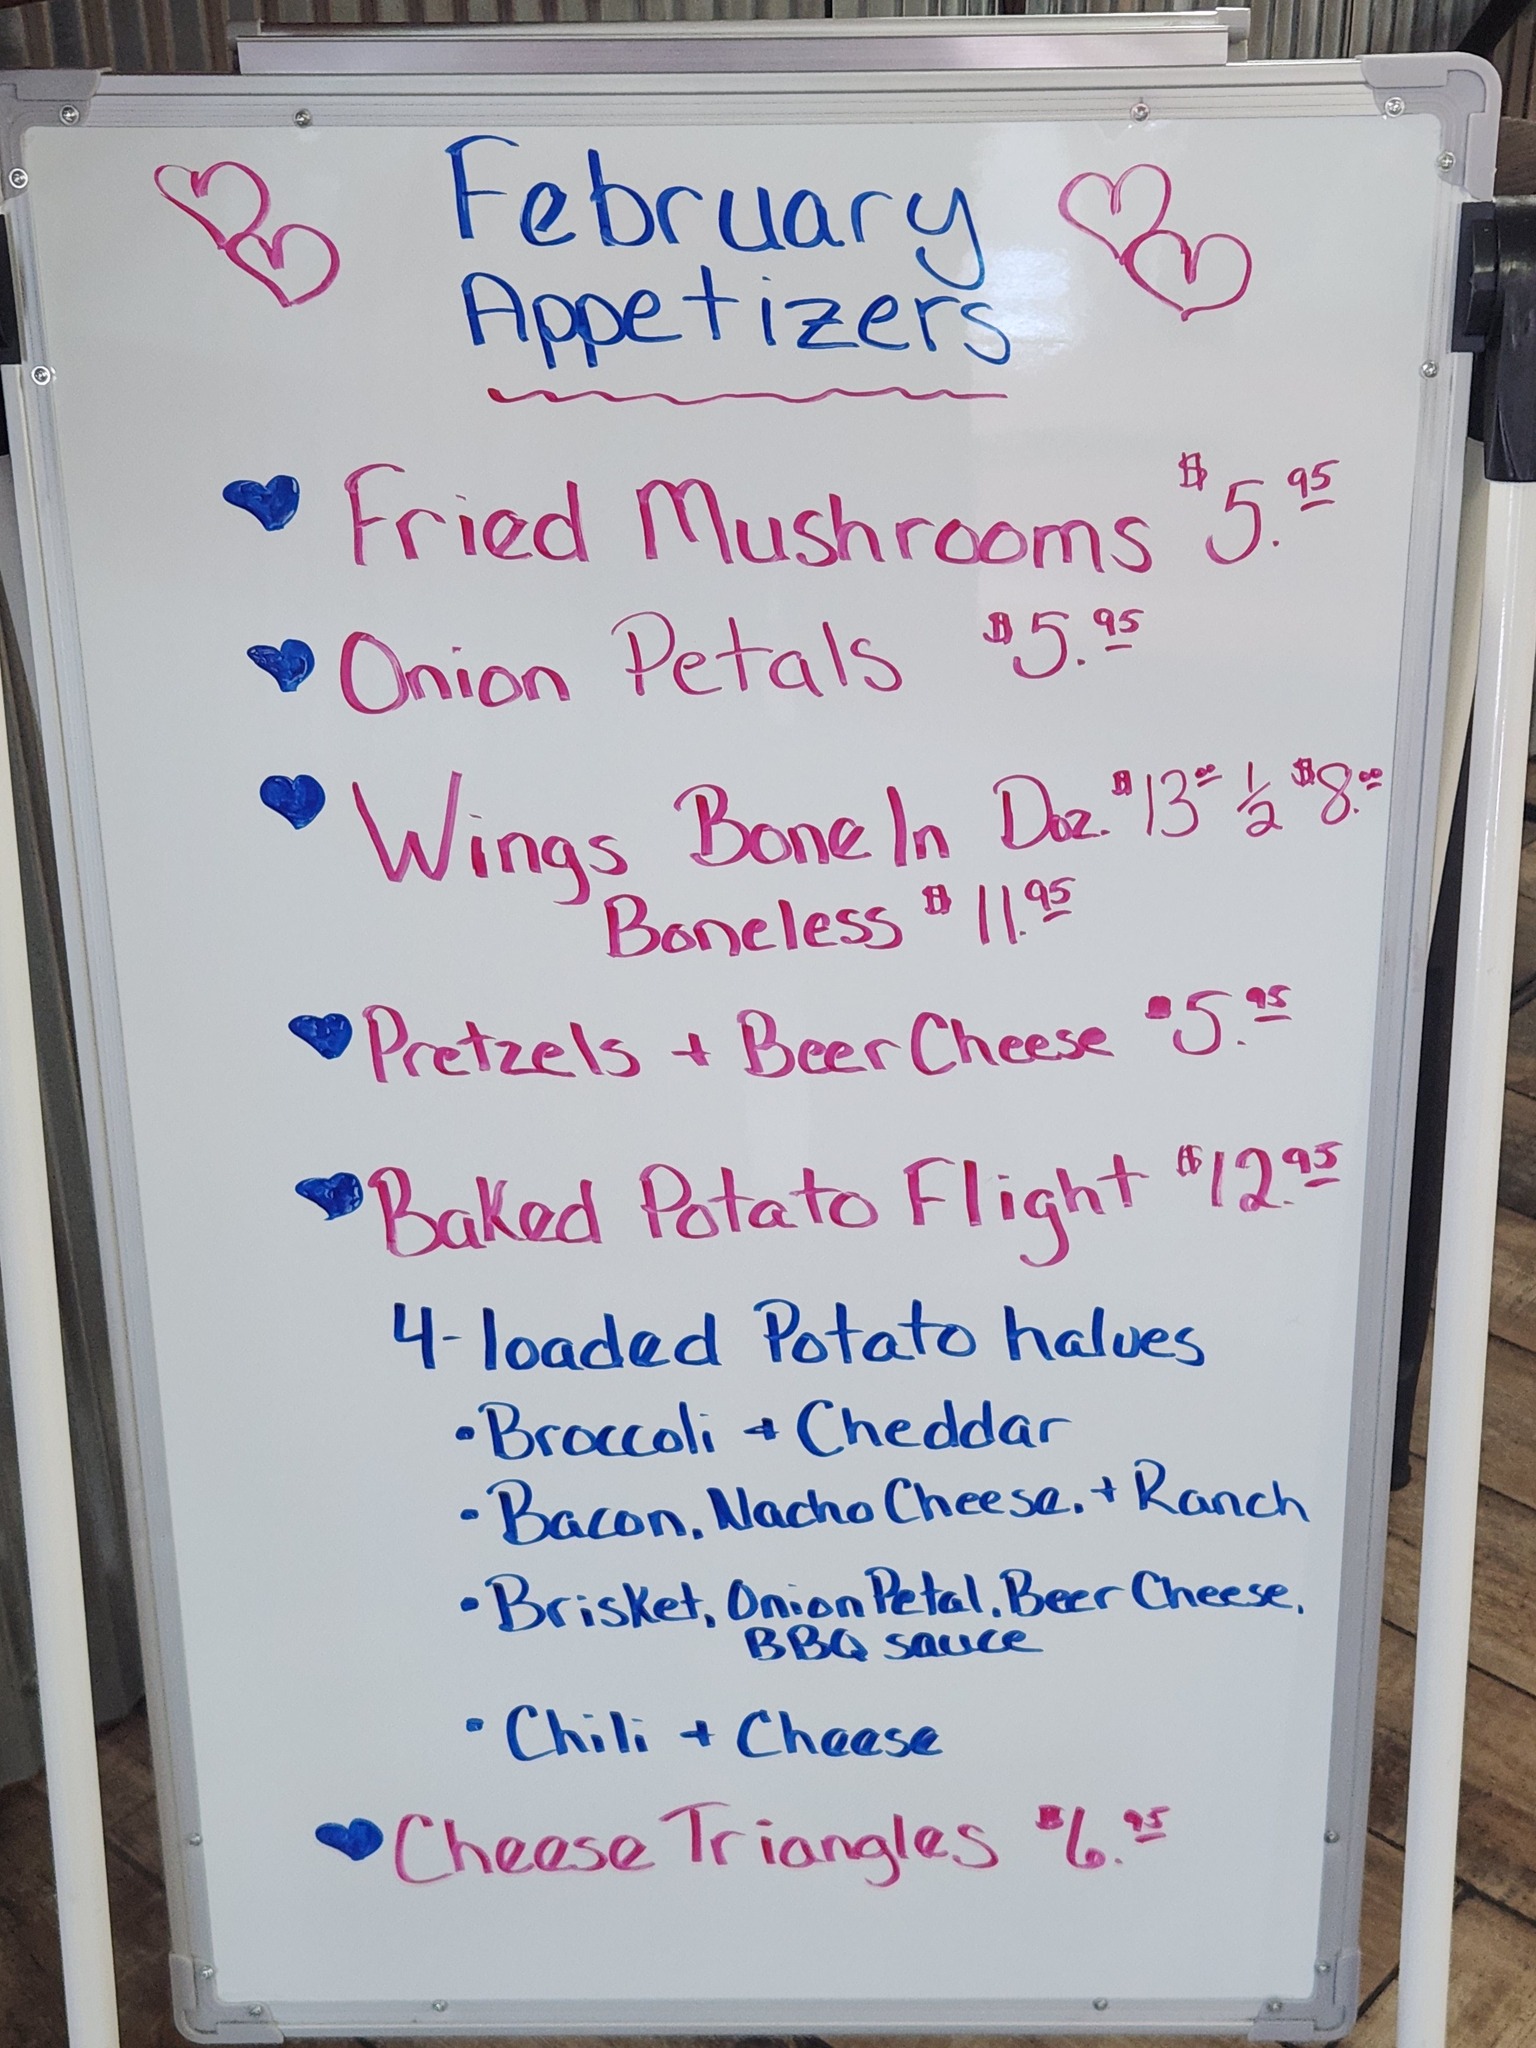 February
Appetizers
Fried Mushrooms $5.95
Onion Petals $5.95
Wings Bone In Doz. $13.00 1/2 $8.00
Boneless $11.95
Pretzels + Beer Cheese $5.95
Baked Potato Flight $12.95
4-loaded Potato halves
• Broccoli + Cheddar
• Bacon, Nacho Cheese, + Ranch
• Brisket, Onion Petal, Beer Cheese,
BBQ sauce
• Chili + Cheese
Cheese Triangles $6.95